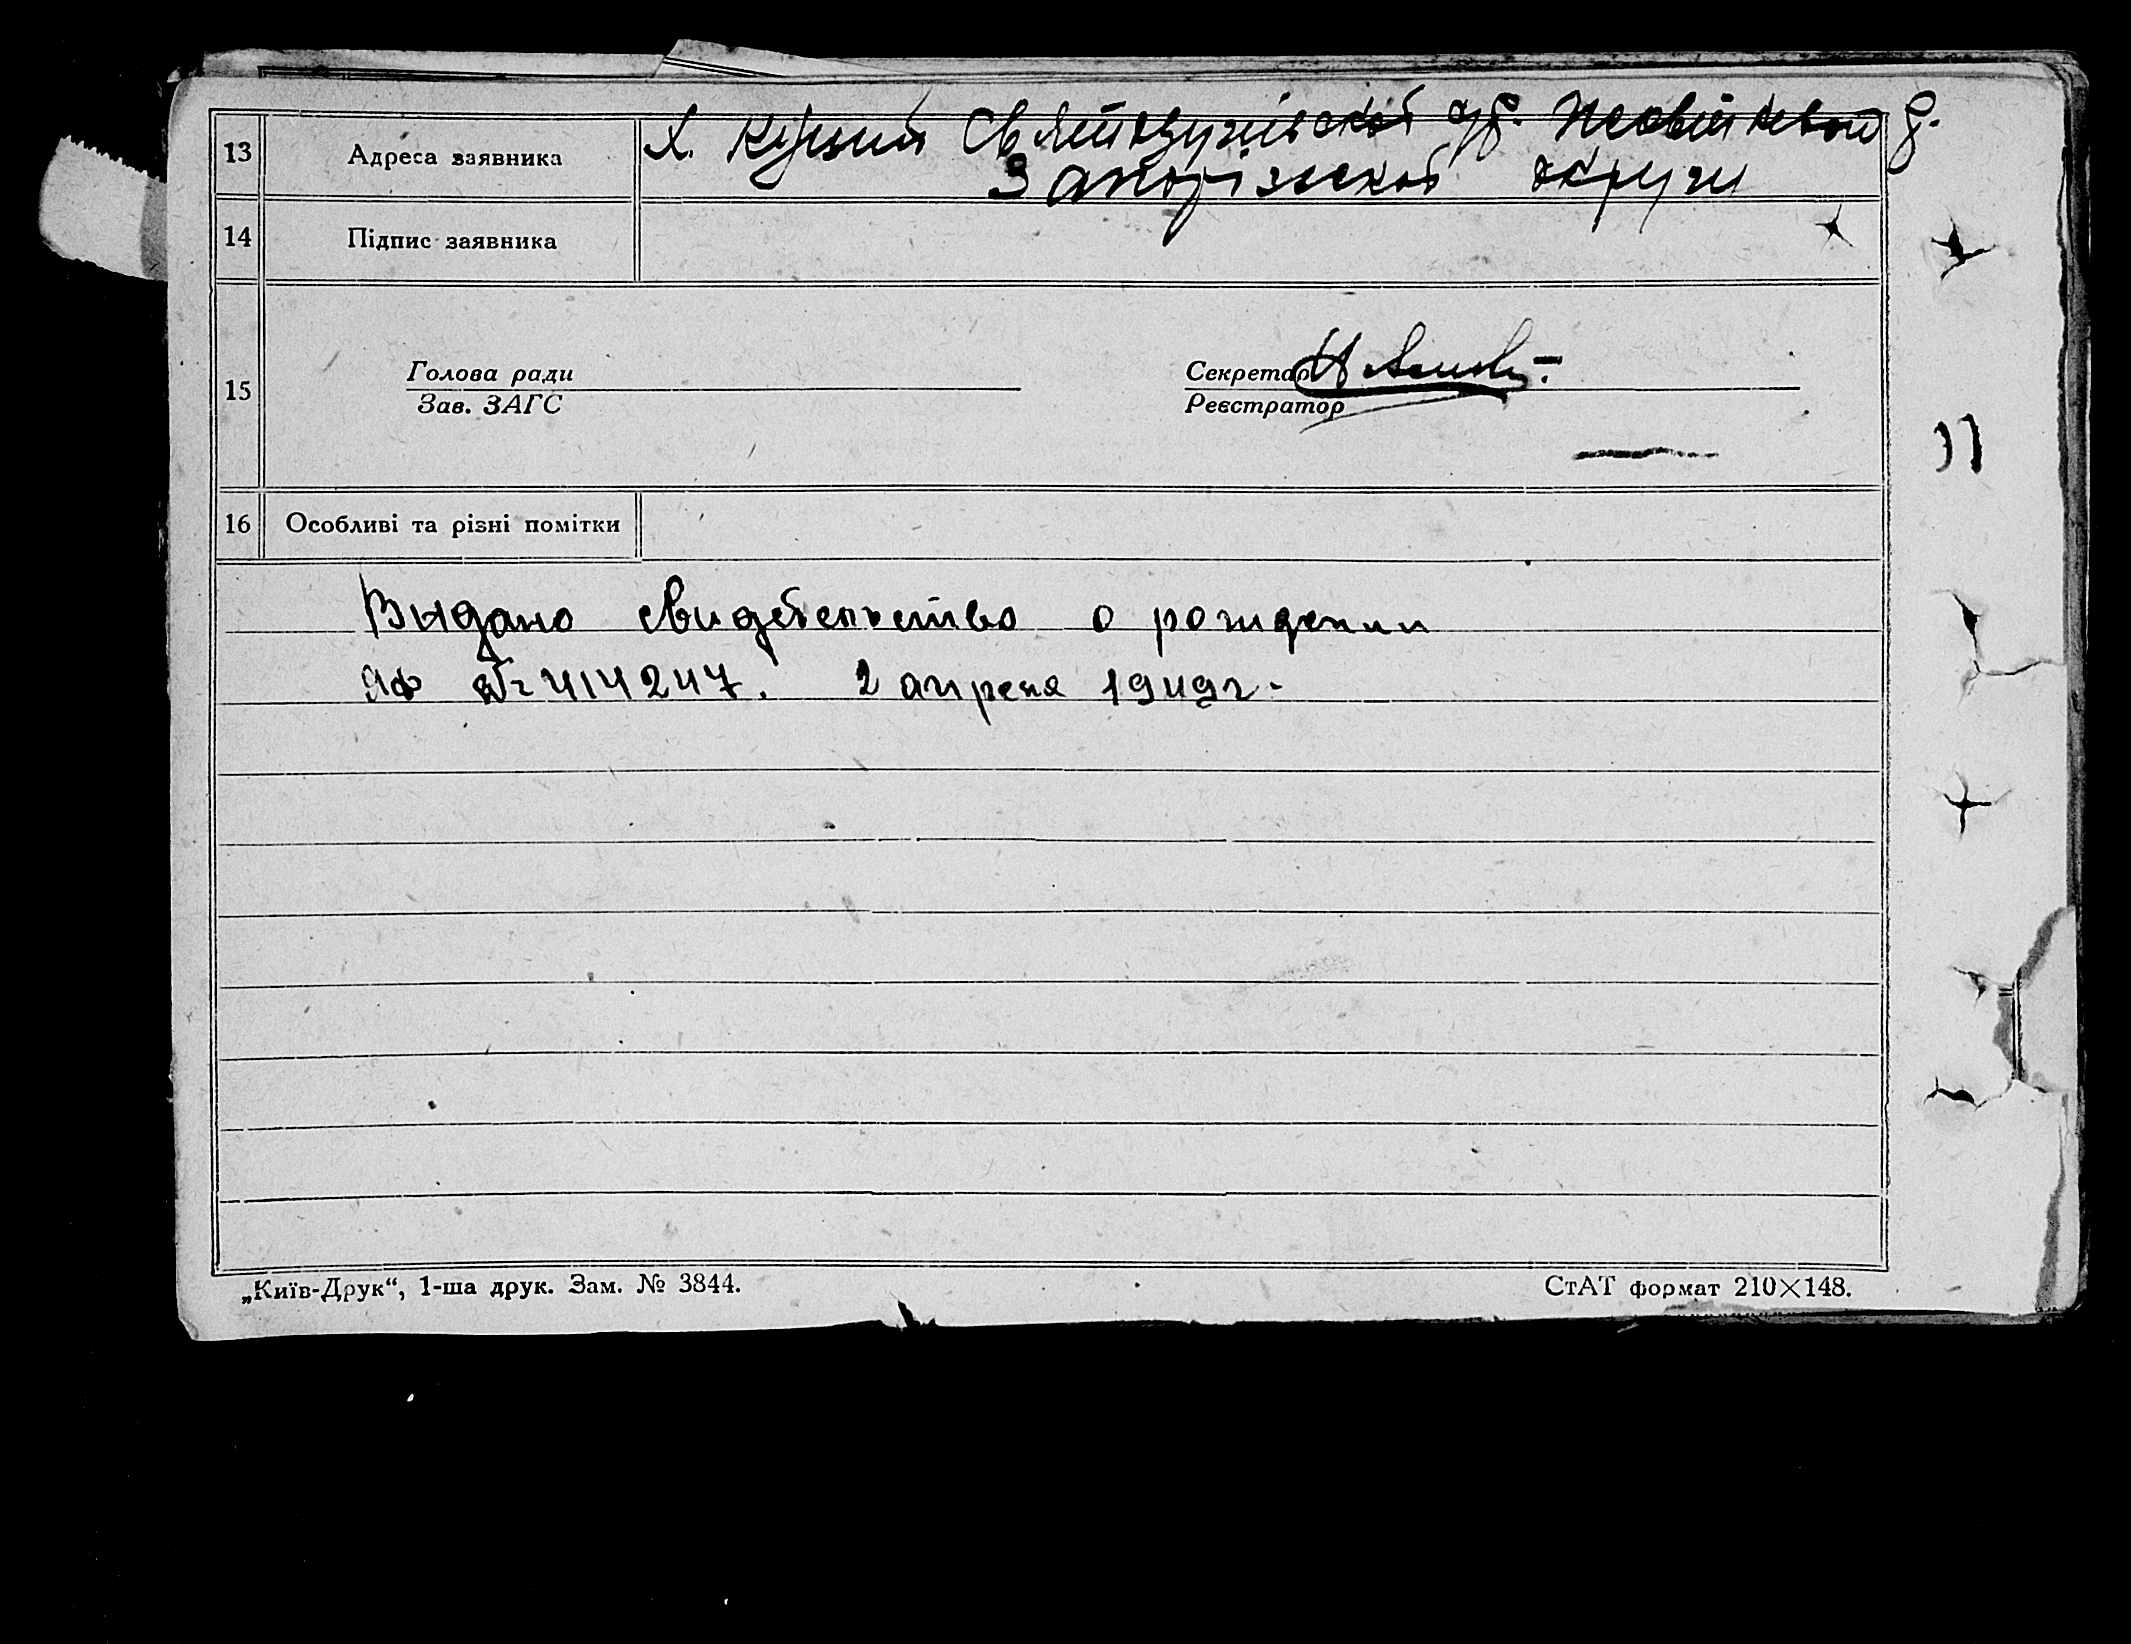 13 Адреса заявника х. Куций
Запорізької округи
14 Підпис заявника
15 Голова ради Секретар
Зав. ЗАГС Реєстратор
16 Особливі та різні помітки
Выдано свидетельство о рождении
ЯФ № 414247. 2 апреля 1949г.
„Київ-Друк“, 1-ша друк. Зам. № 3844. СтАТ формат 210×148.